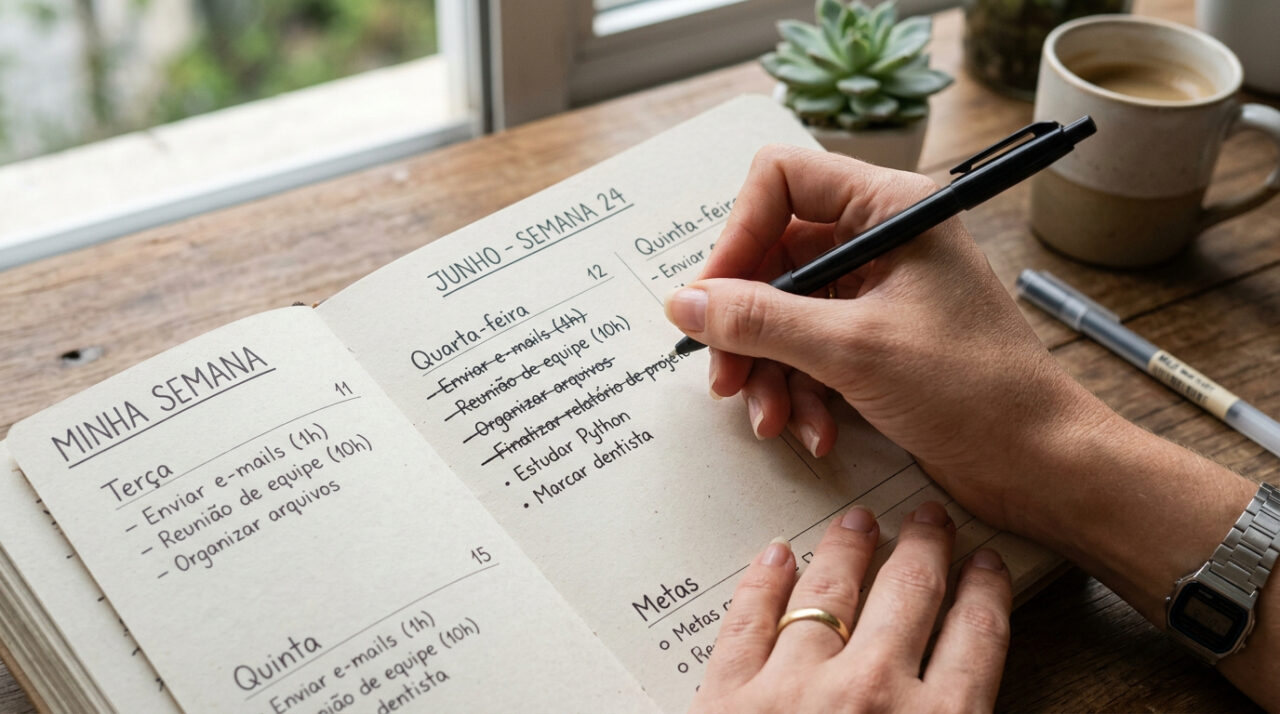 MINHA SEMANA
11
Terça
- Enviar e-mails (1h)
- Reunião de equipe (10h)
- Organizar arquivos
15
Quinta
Enviar e-mails (1h)
de equipe (10h)
dentista
JUNHO - SEMANA 24
12
Quarta-feira
- Enviar e-mails (1h)
- Reunião de equipe (10h)
- Organizar arquivos
- Finalizar relatório de
• Estudar Python
• Marcar dentista
Quinta-feira
- Enviar
Metas
o Metas